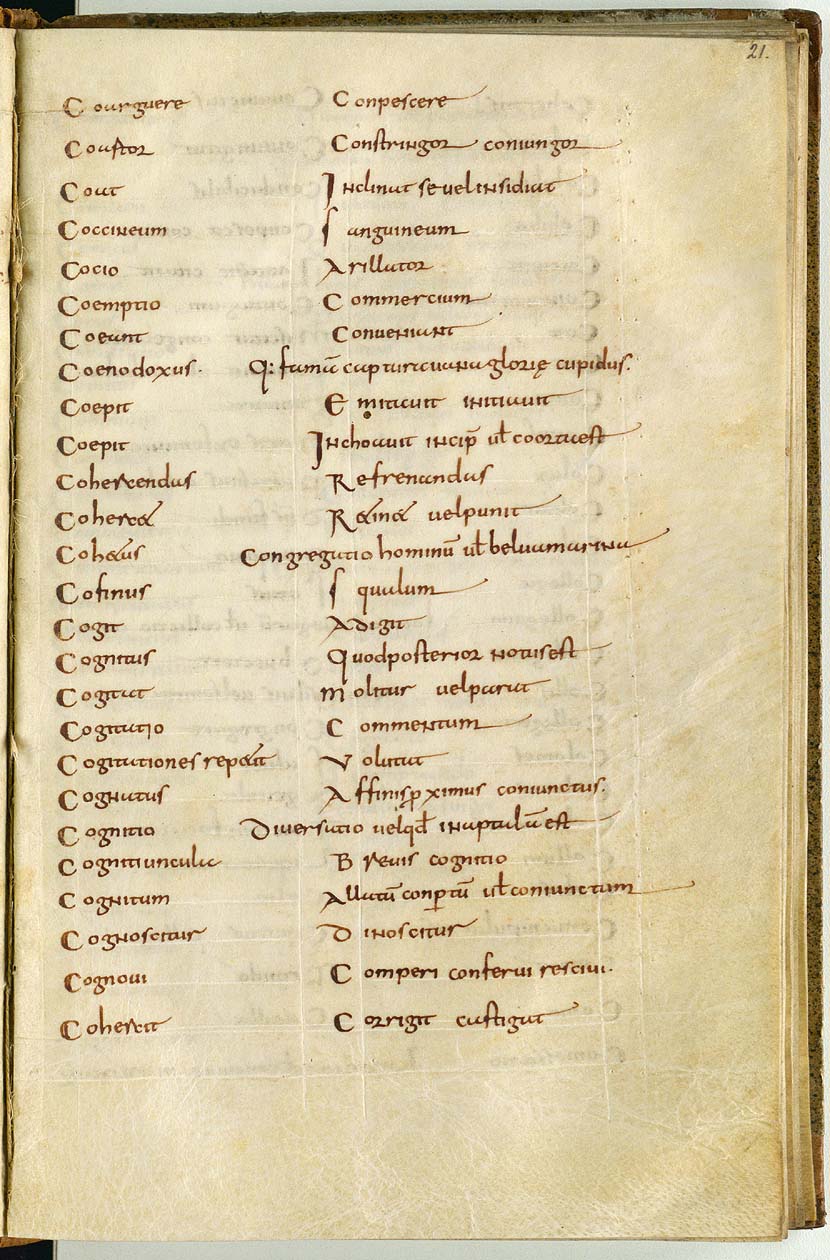 21.
Coarguere Conpescere
Coastor Constringor coniungor
Coat Inclinat se vel insidiat
Coccineum Sanguineum
Cocio Arillator
Coemptio Commercium
Coeunt Conveniunt
Coenodoxus. Q: famā captura vana glorię cupidus.
Coepit Emitavit initiavit
Coepit Inchoavit incip̄ ul̄ coorta est
Cohercendus Refrenandus
Coherc& R&in& vel punit
Coh&us Congregatio hominū ul̄ belua marina
Cofinus Squalum
Cogit Adigit
Cognitus Quod posterior notus est
Cogitat Molitur vel parat
Cogitatio Commentum
Cogitationes rep&it Volutat
Cognatus Affinis ꝓximus coniunctus.
Cognitio Diversatio vel qđ in aptulū est
Cognitiuncula Brevis cognitio
Cognitum Allatū conꝑtū ul̄ coniunctum
Cognoscitur Dinoscitur
Cognovi Comperi conferui rescivi.
Cohercit Corrigit castigat